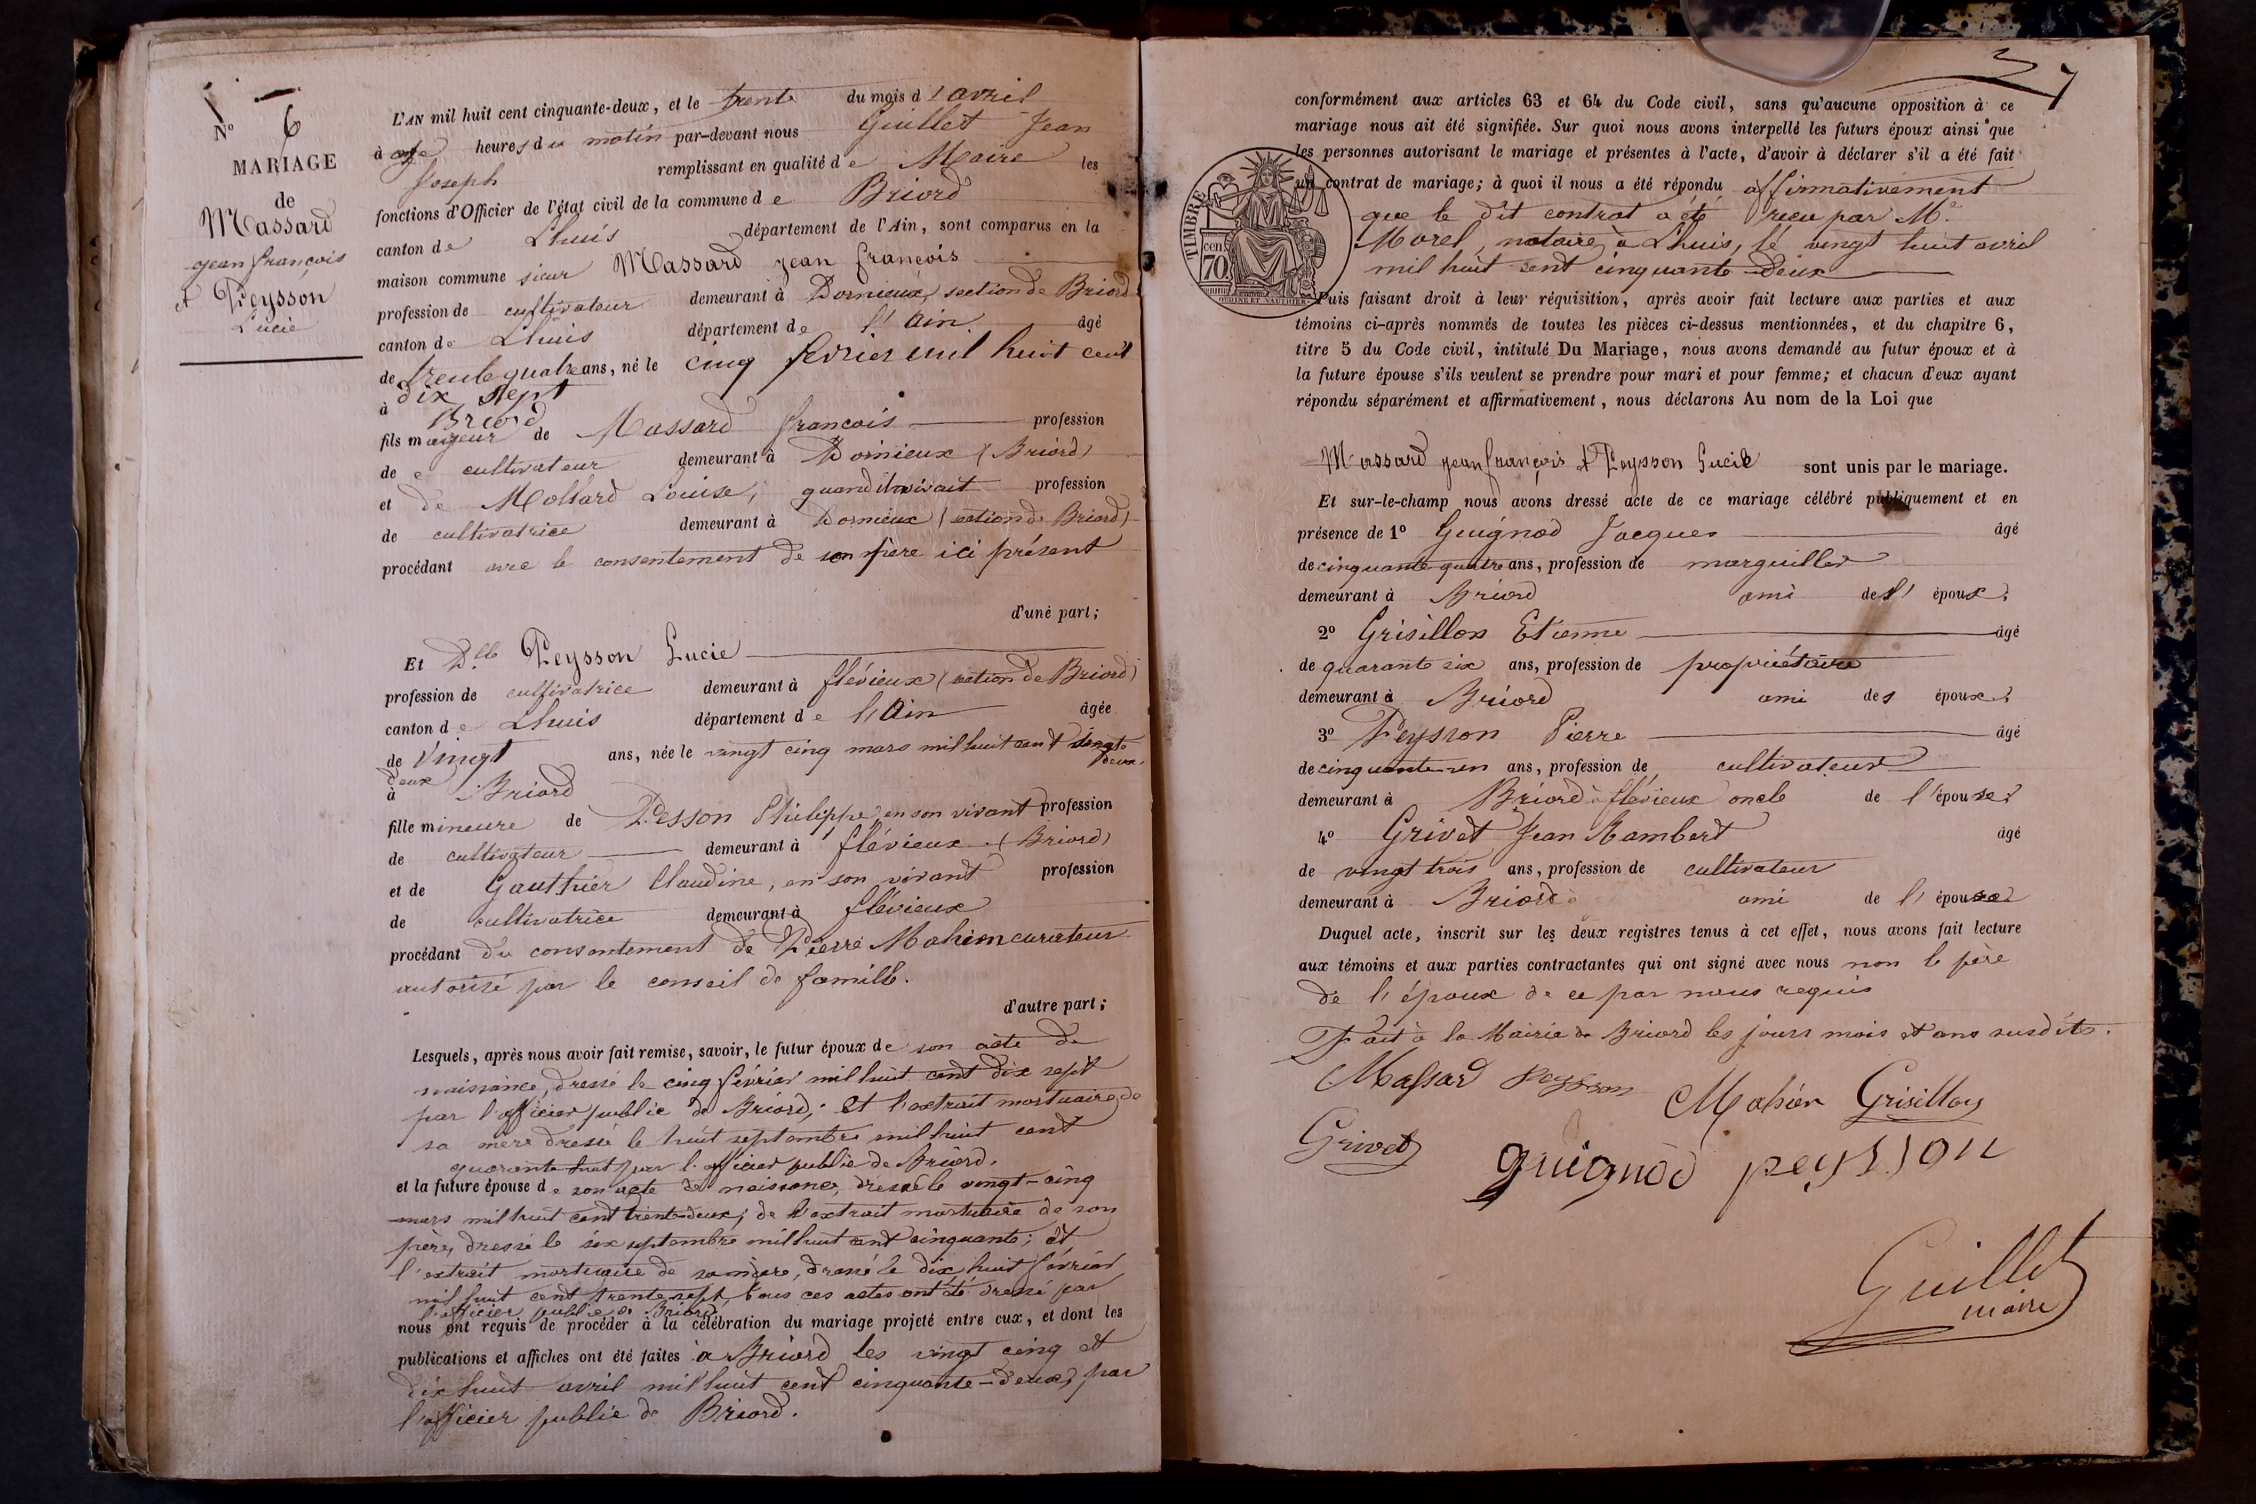 N° 6
MARIAGE
de
Massard
jean françois
et Peysson
Lucie
L'AN mil huit cent cinquante-deux, et le trente du mois d'avril
à onze heures du matin par-devant nous Guillet Jean
Joseph remplissant en qualité de Maire les
fonctions d'Officier de l'état civil de la commune de Briord
canton de Lhuis département de l'Ain, sont comparus en la
maison commune sieur Massard jean francois
profession de cultivateur demeurant à Dornieux, section de Briord
canton de Lhuis département de l'Ain âgé
de trente quatre ans, né le cinq fevrier mil huit cent
dix sept
à Briord
fils majeur de Massard francois profession
de cultivateur demeurant à Dornieux (Briord)
et de Mollard Louise, quand vivait profession
de cultivatrice demeurant à Dornieux (section de Briord)
procédant avec le consentement de son père ici présent
d'une part;
Et Dlle Peysson Lucie
profession de cultivatrice demeurant à flévieux (section de Briord)
canton de Lhuis département de l'Ain âgée
de vingt ans, née le vingt cinq mars mil huit cent
deux
à Briord
fille mineure de Pesson Philippe en son vivant profession
de cultivateur demeurant à flévieux (Briord)
et de Gauthier Claudine, en son vivant profession
de cultivatrice demeurant à flévieux
procédant du consentement de Pierre Mahion curateur
autorisé par le conseil de famille.
d'autre part;
Lesquels, après nous avoir fait remise, savoir, le futur époux de son acte de
naissance, dressé le cinq février mil huit cent dix sept
par l'officier public de Briord; et l'extrait mortuaire de
sa mère dressé le huit septembre mil huit cent
quarante huit par l'officier public de Briord.
et la future épouse de son acte de naissance, dressé le vingt-cinq
mars mil huit cent trente-deux; de l'extrait mortuaire de son
père, dressé le six septembre mil huit cent cinquante; et
l'extrait mortuaire de sa mère, dressé le dix huit février
mil huit cent trente sept, tous ces actes ont été dressé par
l'officier public de Briord
nous ont requis de procéder à la célébration du mariage projeté entre eux, et dont les
publications et affiches ont été faites à Briord les vingt cinq et
dix huit avril mil huit cent cinquante-deux, par
l'officier public de Briord.
conformément aux articles 63 et 64 du Code civil, sans qu'aucune opposition à ce
mariage nous ait été signifiée. Sur quoi nous avons interpellé les futurs époux ainsi que
les personnes autorisant le mariage et présentes à l'acte, d'avoir à déclarer s'il a été fait
un contrat de mariage; à quoi il nous a été répondu affirmativement
que le dit contrat a été reçu par Me
Morel, notaire à Lhuis, le vingt huit avril
mil huit cent cinquante deux
TIMBRE
cen
70
Puis faisant droit à leur réquisition, après avoir fait lecture aux parties et aux
témoins ci-après nommés de toutes les pièces ci-dessus mentionnées, et du chapitre 6,
titre 5 du Code civil, intitulé Du Mariage, nous avons demandé au futur époux et à
la future épouse s'ils veulent se prendre pour mari et pour femme; et chacun d'eux ayant
répondu séparément et affirmativement, nous déclarons Au nom de la Loi que
Massard jean françois et Peysson Lucie sont unis par le mariage.
Et sur-le-champ nous avons dressé acte de ce mariage célébré publiquement et en
présence de 1° Guignod Jacques âgé
de cinquante quatre ans, profession de marguiller
demeurant à Briord ami de l'époux;
2° Grisillon Etienne âgé
de quarante six ans, profession de propriétaire
demeurant à Briord ami des époux;
3° Peysson Pierre âgé
de cinquante un ans, profession de cultivateur
demeurant à Briord à flévieux oncle de l'épouse;
4° Grivet Jean Rambert âgé
de vingt trois ans, profession de cultivateur
demeurant à Briord ami de l'épouse
Duquel acte, inscrit sur les deux registres tenus à cet effet, nous avons fait lecture
aux témoins et aux parties contractantes qui ont signé avec nous non le père
de l'époux de ce par nous requis
Fait à la Mairie de Briord les jours mois et ans susdits.
Massard Peysson Mahion Grisillon
Grivet guignod peysson
Guillet
maire